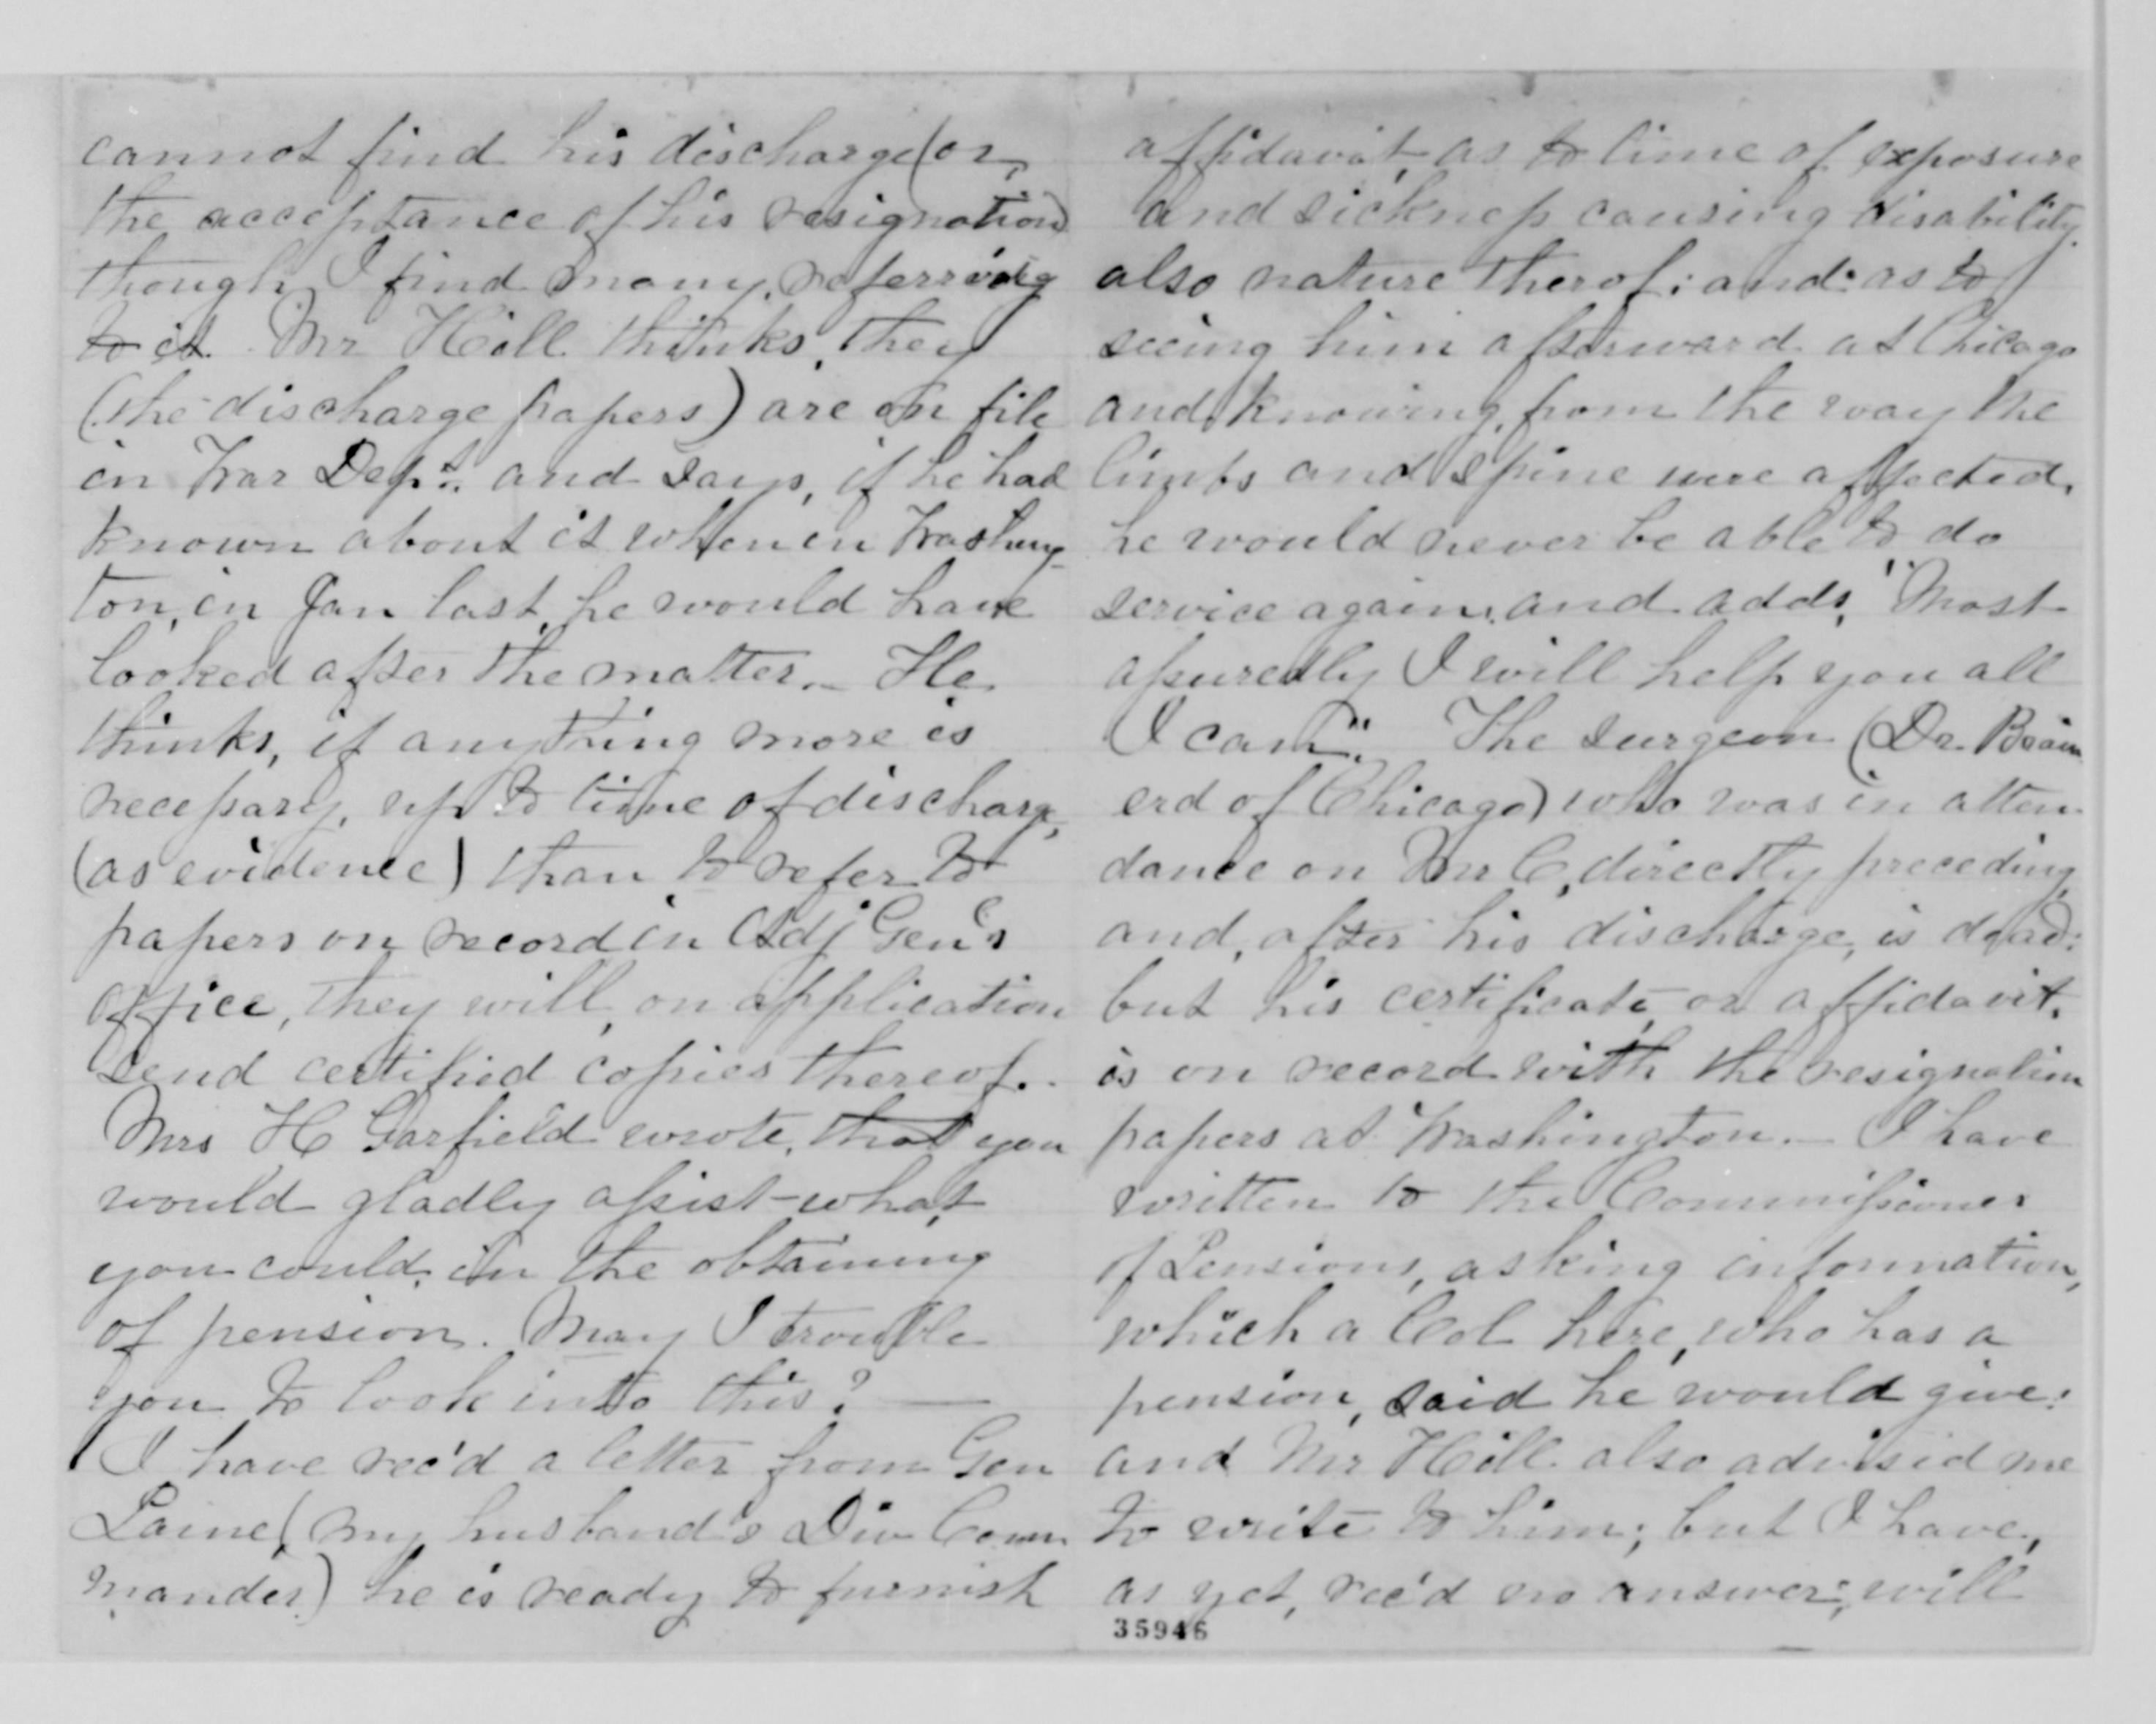 cannot find his discharge (or,
the acceptance of his resignation)
though I find many, referring
to it. Mr Hill thinks, they
(the discharge papers) are on file
in War Dept. and says, if he had
known about it when in Washing-
ton, in Jan last, he would have
looked after the matter. – He
thinks, if anything more is
necessary, up to time of discharge,
(as evidence) than to refer to
papers on record in Adj Gen's
office, they will, on application
send certified copies thereof. -
Mrs H Garfield wrote, that you
would gladly assist what
you could, in the obtaining
of pension. May I trouble
you to look into this? —
I have rec'd a letter from Gen
Paine (my husband's Div Com
mander) he is ready to furnish
affidavit, as to time of exposure
and sickness causing disability,
also nature therof; and as to
seeing him afterward at Chicago
and, knowing, from the way the
limbs and spine were affected,
he would never be able to do
service again, and adds, "Most
assuredly I will help you all
I can". The surgeon (Dr. Brain
erd of Chicago) who was in atten-
dance on Mr C, directly preceding,
and, after his discharge, is dead:
but his certificate, or affidavit,
is on record with the resignation
papers at Washington. – I have
written to the Commissioner
of Pensions, asking information,
which a Col here, who has a
pension, said he would give:
and Mr Hill also advised me
to write to him; but I have,
as yet, rec'd no answer; will
35946